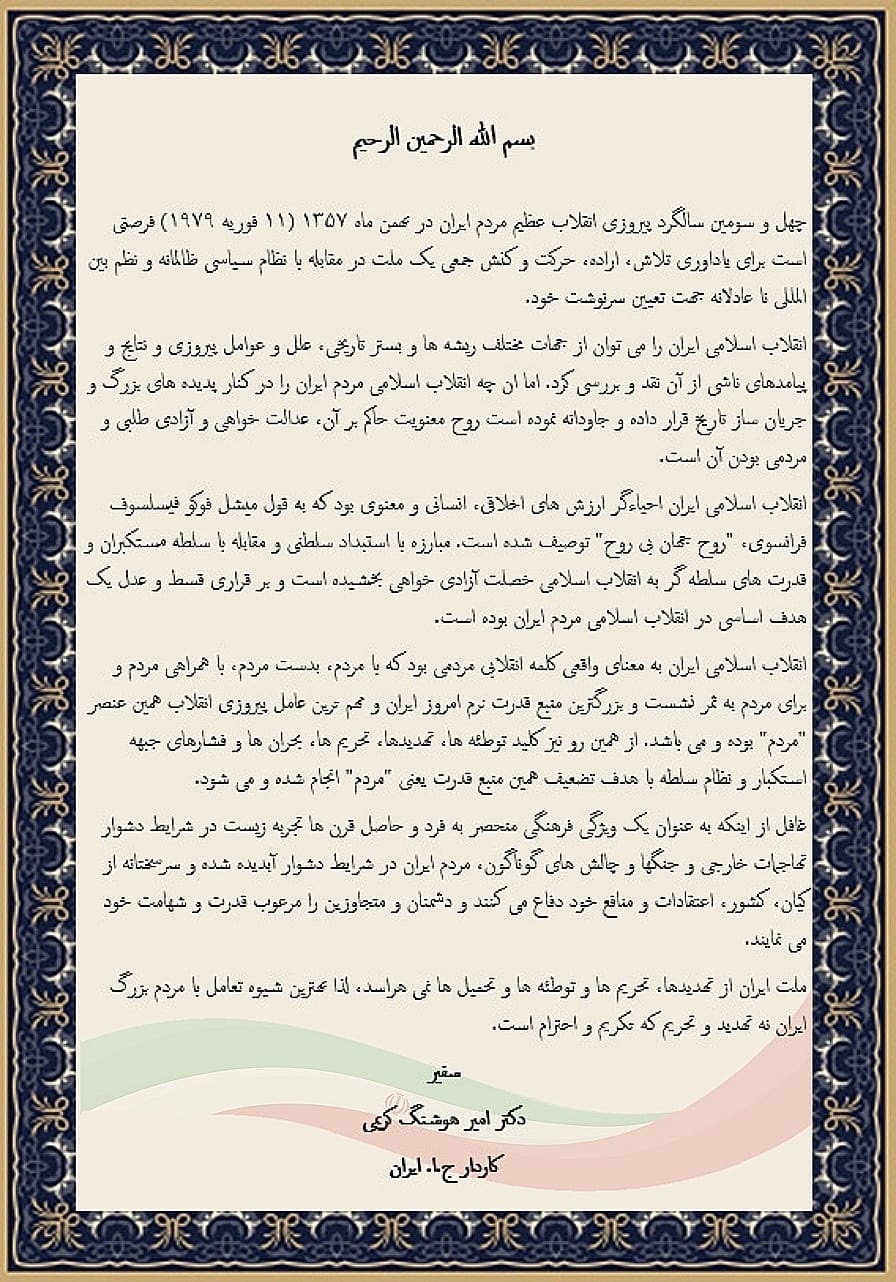 بسم الله الرحمن الرحیم
چهل و سومین سالگرد پیروزی انقلاب عظیم مردم ایران در بهمن ماه ۱۳۵۷ (۱۱ فوریه ۱۹۷۹) فرصتی
است برای یاداوری تلاش، اراده، حرکت و کنش جمعی یک ملت در مقابله با نظام سیاسی ظالمانه و نظم بین
المللی نا عادلانه جهت تعیین سرنوشت خود.
انقلاب اسلامی ایران را می توان از جهات مختلف ریشه ها و بستر تاریخی، علل و عوامل پیروزی و نتایج و
پیامدهای ناشی از آن نقد و بررسی کرد. اما ان چه انقلاب اسلامی مردم ایران را در کنار پدیده های بزرگ و
جریان ساز تاریخ قرار داده و جاودانه نموده است روح معنویت حاکم بر آن، عدالت خواهی و آزادی طلبی و
مردمی بودن آن است.
انقلاب اسلامی ایران احیاءگر ارزش های اخلاقی، انسانی و معنوی بود که به قول میشل فوکو فیسلسوف
فرانسوی، "روح جهان بی روح" توصیف شده است. مبارزه با استبداد سلطنی و مقابله با سلطه مستکبران و
قدرت های سلطه گر به انقلاب اسلامی خصلت آزادی خواهی بخشیده است و بر قراری قسط و عدل یک
هدف اساسی در انقلاب اسلامی مردم ایران بوده است.
انقلاب اسلامی ایران به معنای واقعی کلمه انقلابی مردمی بود که با مردم، بدست مردم، با همراهی مردم و
برای مردم به ثمر نشست و بزرگترین منبع قدرت نرم امروز ایران و مهم ترین عامل پیروزی انقلاب همین عنصر
"مردم" بوده و می باشد. از همین رو نیز کلید توطئه ها، تهدیدها، تحریم ها، بحران ها و فشارهای جبهه
استکبار و نظام سلطه با هدف تضعیف همین منبع قدرت یعنی "مردم" انجام شده و می شود.
غافل از اینکه به عنوان یک ویژگی فرهنگی منحصر به فرد و حاصل قرن ها تجربه زیست در شرایط دشوار
تهاجمات خارجی و جنگها و چالش های گوناگون، مردم ایران در شرایط دشوار آبدیده شده و سرسختانه از
کیان، کشور، اعتقادات و منافع خود دفاع می کنند و دشمنان و متجاوزین را مرعوب قدرت و شهامت خود
می نمایند.
ملت ایران از تهدیدها، تحریم ها و توطئه ها و تحمیل ها نمی هراسد، لذا بهترین شیوه تعامل با مردم بزرگ
ایران نه تهدید و تحریم که تکریم و احترام است.
سفیر
دکتر امیر هوشنگ کرمی
کاردار ج.ا. ایران